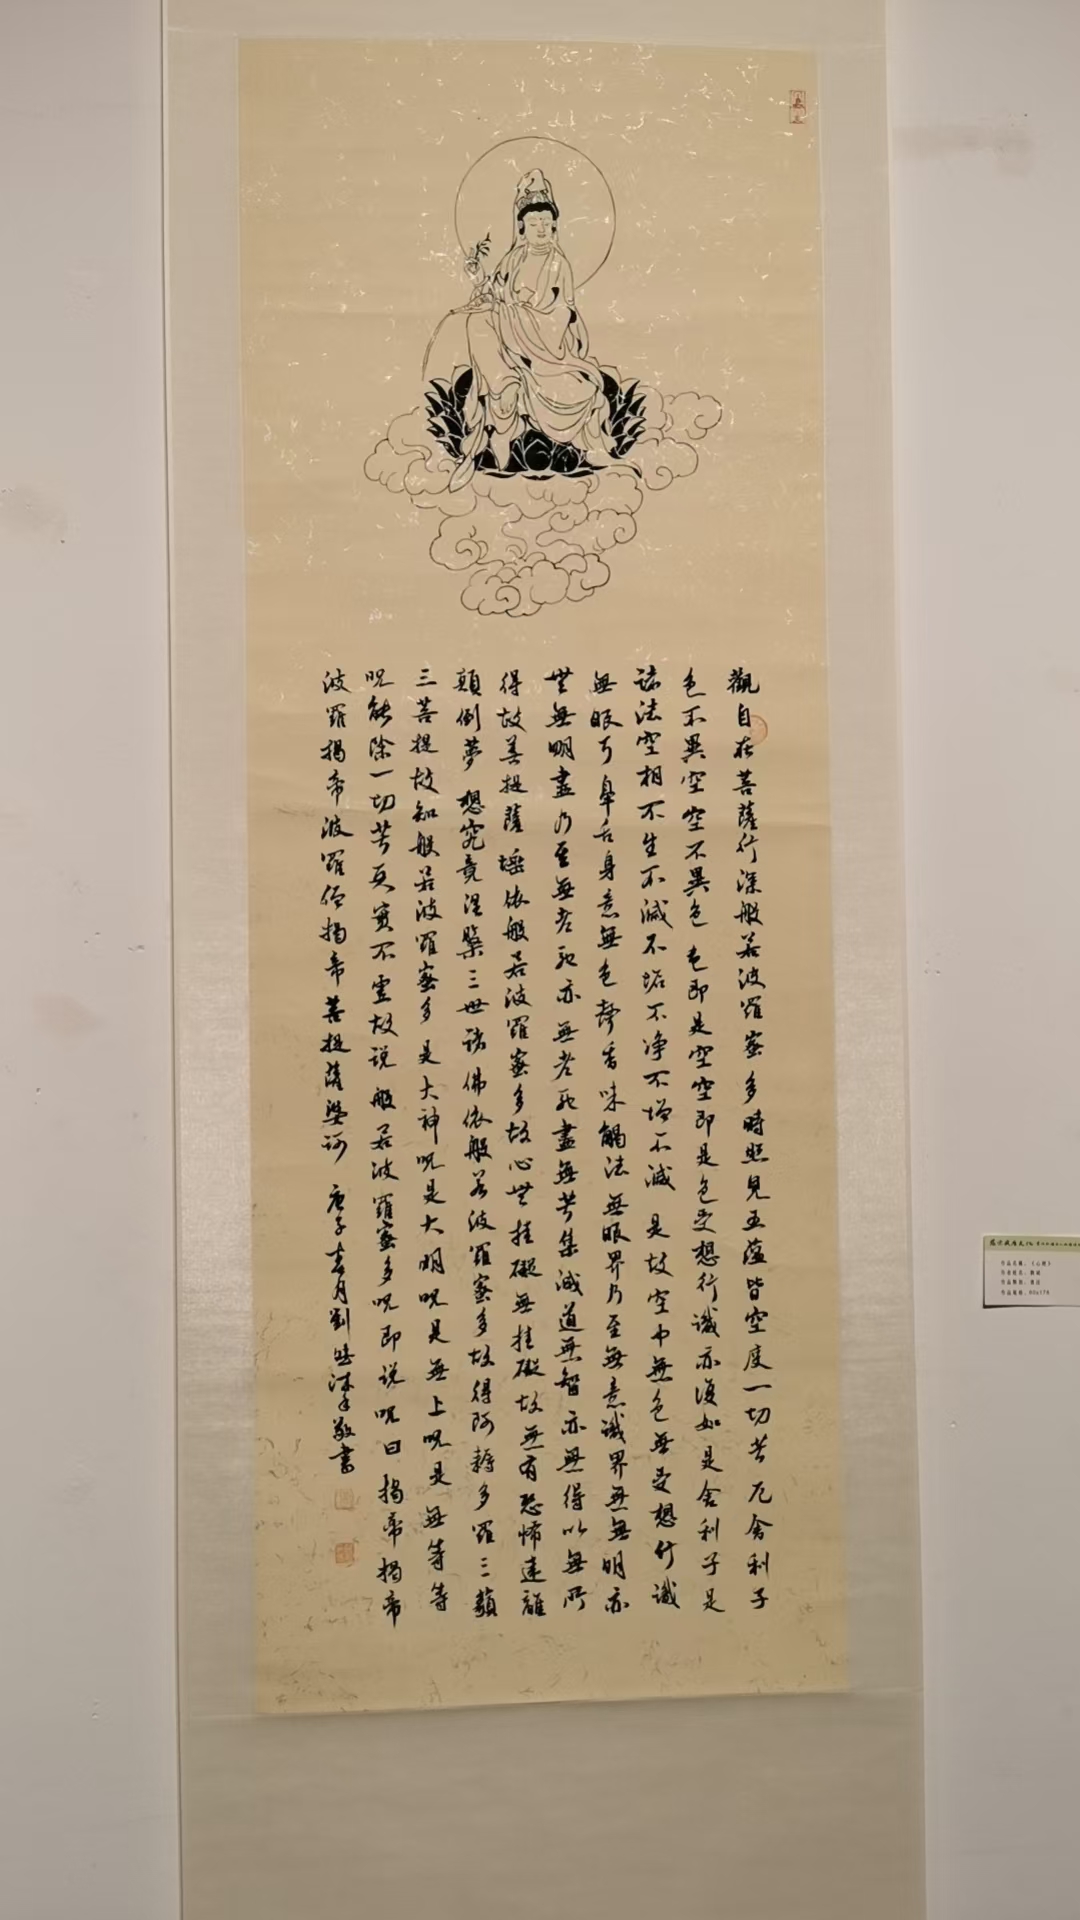 觀自在菩薩行深般若波羅蜜多時照見五蘊皆空度一切苦厄舍利子
色不異空空不異色色即是空空即是色受想行識亦復如是舍利子是
諸法空相不生不滅不垢不淨不增不減是故空中無色無受想行識
無眼耳鼻舌身意無色聲香味觸法無眼界乃至無意識界無無明亦
無無明盡乃至無老死亦無老死盡無苦集滅道無智亦無得以無所
得故菩提薩埵依般若波羅蜜多故心無挂礙無挂礙故無有恐怖遠離
顛倒夢想究竟涅槃三世諸佛依般若波羅蜜多故得阿耨多羅三藐
三菩提故知般若波羅蜜多是大神咒是大明咒是無上咒是無等等
咒能除一切苦真實不虛故說般若波羅蜜多咒即說咒曰揭帝揭帝
波羅揭帝波羅僧揭帝菩提薩婆訶 庚子春月劉敬書
作品名稱：《心經》